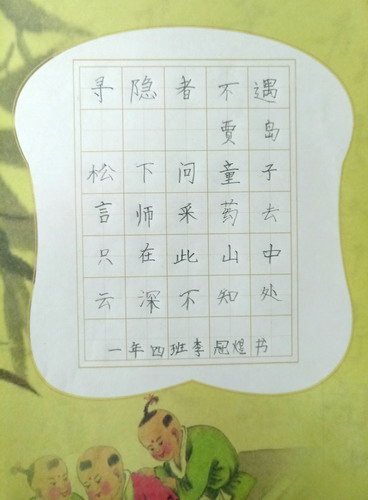 寻隐者不遇
贾岛
松下问童子
言师采药去
只在此山中
云深不知处
一年四班李冠煜书